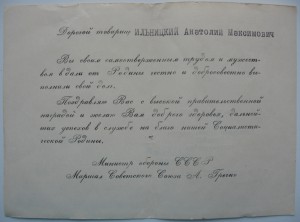 Дорогой товарищ ИЛЬНИЦКИЙ Анатолий Максимович
Вы своим самоотверженным трудом и мужеством
вдали от Родины честно и добросовестно выполнили
свой долг.
Поздравляю Вас с высокой правительственной
наградой и желаю Вам доброго здоровья, дальнейших
успехов в службе на благо нашей Социалистической
Родины.
Министр обороны СССР
Маршал Советского Союза А. Гречко